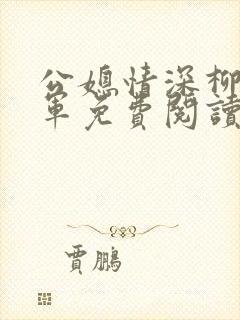 公媳情深柳
軍免費閱讀
賈鵬